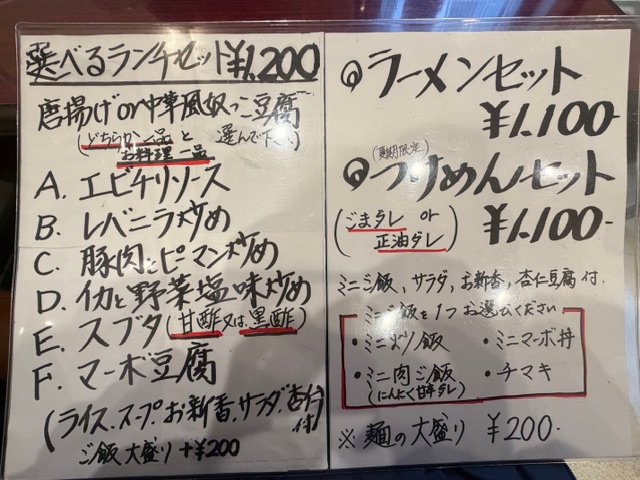 選べるランチセット ¥1,200
唐揚げ or 中華風奴っこ豆腐
(どちらか一品と 選んで下さい)
お料理一品
A. エビチリソース
B. レバニラ炒め
C. 豚肉とピーマン炒め
D. イカと野菜塩味炒め
E. スブタ(甘酢又は黒酢)
F. マーボ豆腐
(ライス、スープ、お新香、サラダ、杏仁付)
ご飯大盛り +¥200
◎ラーメンセット
¥1,100-
(夏期限定)
◎つけめんセット
(ごまダレ or 正油ダレ) ¥1,100-
ミニご飯、サラダ、お新香、杏仁豆腐 付.
ミニご飯を1つお選びください
・ミニ炒飯 ・ミニマーボ丼
・ミニ肉ご飯 ・チマキ
(にんにく甘辛ダレ)
※ 麺の大盛り ¥200-